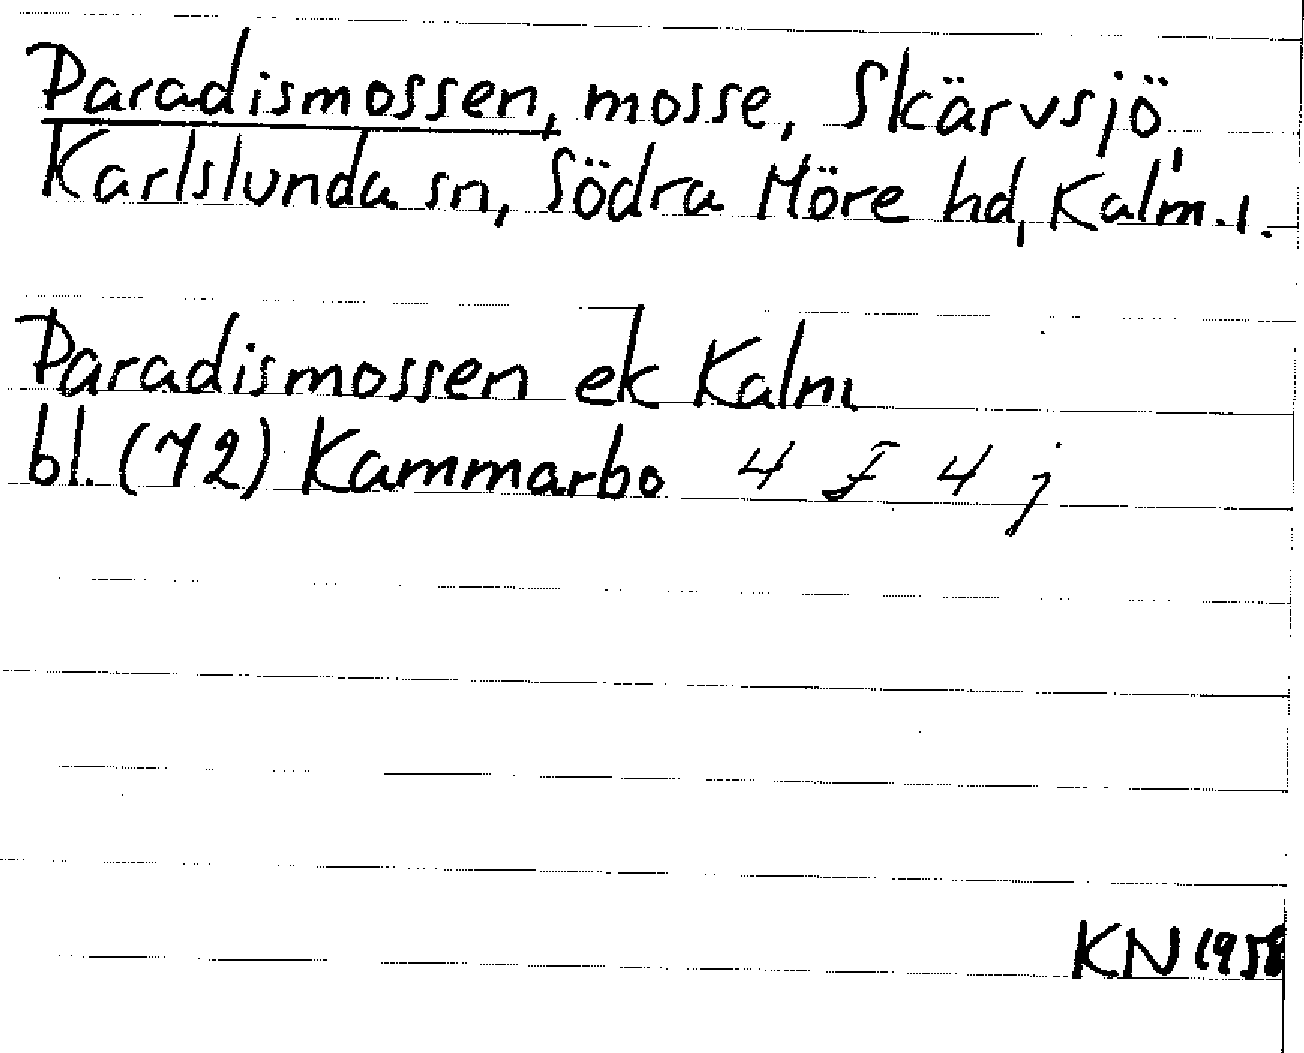 Paradismossen, mosse, Skärvsjö,
Karlslunda sn, Södra Möre hd, Kalm. l.
Paradismossen ek Kalm
bl. (72) Kammarbo 4 F 4 j
KN 1958